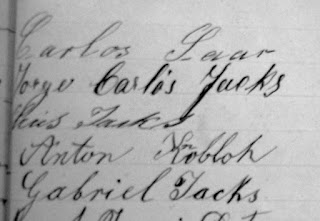 Carlos Saar
Jorge Carlos Jacks
Jacks
Anton Kobloh
Gabriel Jacks